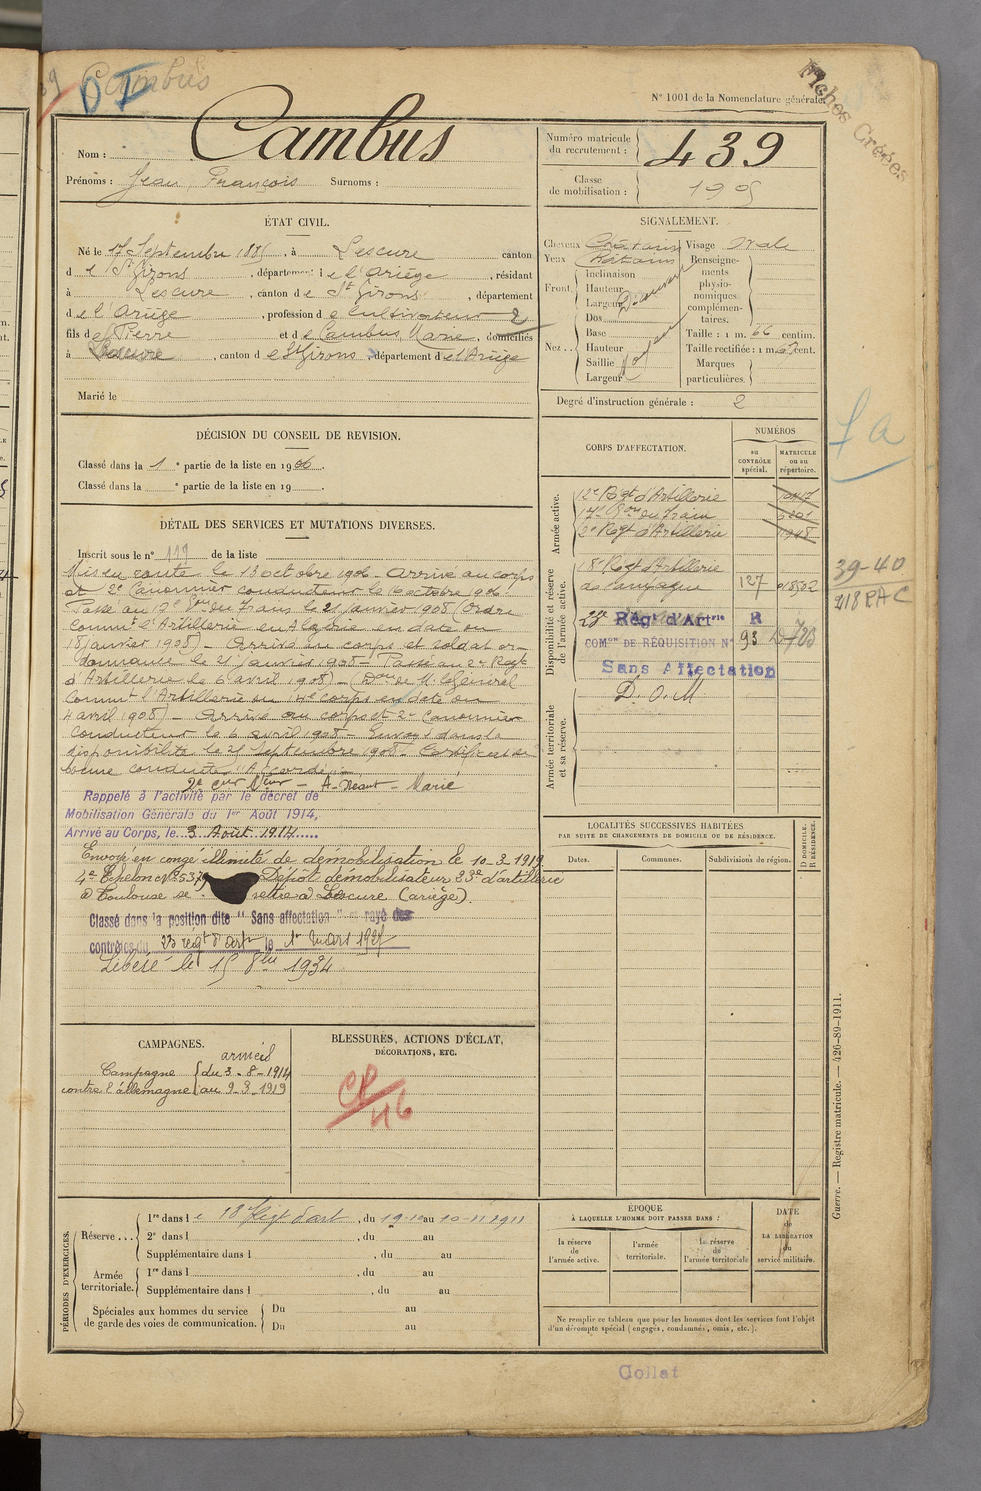 Cambus
Fiches Créées
N° 1001 de la Nomenclature générale.
Nom : Cambus
Prénoms : Jean François Surnoms :
Numéro matricule du recrutement : 439
Classe de mobilisation : 1905
ÉTAT CIVIL.
Né le 17 Septembre 1885, à Lescure canton
de St Girons, département de l'Ariège, résidant
à Lescure, canton de St Girons, département
de l'Ariège, profession de cultivateur
fils de Pierre et de Cambus Marie, domiciliés
à Lescure, canton de St Girons, département de l'Ariège
Marié le
SIGNALEMENT.
Cheveux Châtain Visage Ovale
Yeux Châtain
Front Inclinaison
Hauteur
Largeur
Nez Dos
Base
Hauteur
Saillie
Largeur
Moyen
Renseignements physionomiques complémentaires.
Taille : 1 m. 66 centim.
Taille rectifiée : 1 m. cent.
Marques particulières.
Degré d'instruction générale : 2
DÉCISION DU CONSEIL DE REVISION.
Classé dans la 1e partie de la liste en 1906.
Classé dans la e partie de la liste en 19
DÉTAIL DES SERVICES ET MUTATIONS DIVERSES.
Inscrit sous le n° 119 de la liste
Mis en route le 13 octobre 1906 - Arrivé au corps
et 2e Canonnier conducteur le octobre 906.
Passé au 17e du Train le 21 janvier 1908 (Ordre
Commt l'Artillerie en Algérie en date du
18 janvier 1908) - Arrivé au corps et soldat or-
donnance le 21 janvier 1908 - Passé au 2e Régt
d'Artillerie le 6 avril 1908 - ( de M. le Général
Commt l'Artillerie du 14e corps en date du
4 avril 1908) - Arrivé au corps et 2e Canonnier
conducteur le 6 avril 1908 - Envoyé dans la
disponibilité le 25 Septembre 1908 - Certificat de
bonne conduite "Accordé" -
2e - A. néant - Marié
Rappelé à l'activité par le décret de
Mobilisation Générale du 1er Août 1914,
Arrivé au Corps, le 3 Août 1914
Envoyé en congé illimité de démobilisation le 10-3-1919
4e Echelon N° 5379 Dépôt démobilisateur 23e d'artillerie
à Toulouse se retire à Lescure (ariège).
Classé dans la position dite "Sans affectation" et rayé des
contrôles du 23 régt d'artie le 1er Mars 1927
Libéré le 15 8bre 1934
CORPS D'AFFECTATION.
NUMÉROS
au CONTRÔLE spécial.
MATRICULE ou au répertoire.
Armée active.
12e Régt d'Artillerie
17e du Train
2e Régt d'Artillerie
Disponibilité et réserve de l'armée active.
18e Régt d'Artillerie
de Campagne 127
23e Régt d'Artrie R
COMon DE RÉQUISITION N° 93
Sans Affectation
Armée territoriale et sa réserve.
D. O. M
39-40
218 RAC
LOCALITÉS SUCCESSIVES HABITÉES
PAR SUITE DE CHANGEMENTS DE DOMICILE OU DE RÉSIDENCE.
Dates. Communes. Subdivisions de région. D DOMICILE. R RÉSIDENCE.
CAMPAGNES.
Campagne contre l'allemagne armées
du 3-8-1914
au 9-3-1919
BLESSURES, ACTIONS D'ÉCLAT,
DÉCORATIONS, ETC.
PÉRIODES D'EXERCICES.
Réserve . . . 1re dans le 18e Régt d'art, du 19-10 au 10-11 1911
2e dans l , du au
Supplémentaire dans l , du au
Armée territoriale. 1re dans l , du au
Supplémentaire dans l , du au
Spéciales aux hommes du service de garde des voies de communication. Du au
Du au
ÉPOQUE
À LAQUELLE L'HOMME DOIT PASSER DANS :
la réserve de l'armée active.
l'armée territoriale.
la réserve de l'armée territoriale
DATE de LA LIBÉRATION du service militaire.
Ne remplir ce tableau que pour les hommes dont les services font l'objet
d'un décompte spécial (engagés, condamnés, omis, etc.).
Guerre. — Registre matricule. — 426-89-1911.
Collat